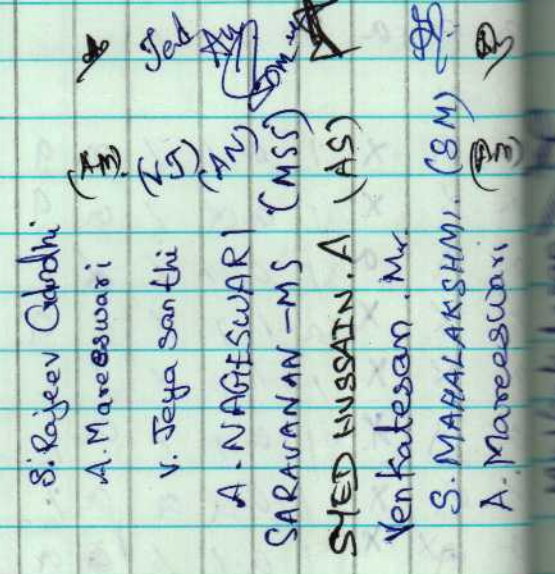 S. Rajeev Gandhi
A. Mareeswari
V. Jeya santhi (VJ)
A. NAGESWARI (AN)
SARAVANAN - MS (MSS)
SYED HUSSAIN. A (AS)
Venkatesan. M
S. MAHALAKSHMI. (SM)
A. Mareeswari